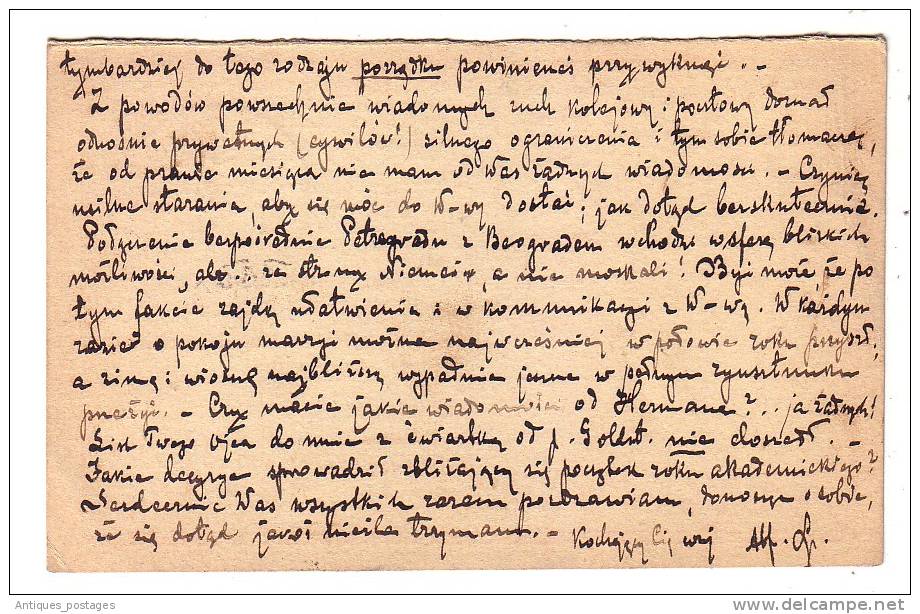 tymbardziej do tego rodzaju porządku powinieneś przywyknąć. –
Z powodów powszechnie wiadomych ruch kolejowy i pocztowy doznał
odnośnie prywatnych (cywilów!) silnego ograniczenia i tym sobie tłomaczę,
że od prawie miesiąca nie mam od Was żadnych wiadomości. – Czynię
usilne starania, aby się móc do W-wy dostać, jak dotąd bezskutecznie.
Połączenie bezpośrednie Petrogradu z Beogradem wchodzi w sferę bliskich
możliwości, ale ze strony Niemców, a nie moskali! Być może że po
tym fakcie zajdą ułatwienia i w kommunikacji z W-wą. W każdym
razie o pokoju marzyć można najwcześniej w połowie roku przyszł.,
a zimę i wiosnę najbliższą wypadnie jeszcze w pełnym rynsztunku
przeżyć. – Czy macie jakie wiadomości od Hermana?.. ja żadnych!
List Twego Ojca do mnie z ćwiartką od p. Goldst. nie doszedł. –
Jakie decyzye sprowadził zbliżający się początek roku akademickiego?
Serdecznie Was wszystkich razem pozdrawiam, donosząc o sobie,
że się dotąd jakoś nieźle trzymam. – Kochający Cię wuj Alf. G.
Antiques_postages
http://www.delcampe.net